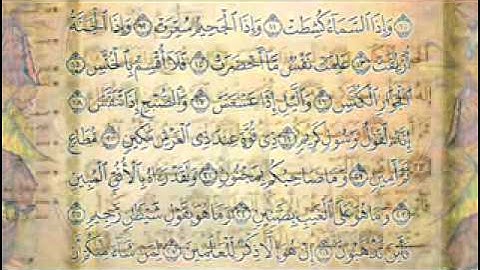 ١٠ وَإِذَا ٱلسَّمَآءُ كُشِطَتْ ١١ وَإِذَا ٱلْجَحِيمُ سُعِّرَتْ ١٢ وَإِذَا ٱلْجَنَّةُ
أُزْلِفَتْ ١٣ عَلِمَتْ نَفْسٌ مَّآ أَحْضَرَتْ ١٤ فَلَآ أُقْسِمُ بِٱلْخُنَّسِ
١٥ ٱلْجَوَارِ ٱلْكُنَّسِ ١٦ وَٱلَّيْلِ إِذَا عَسْعَسَ ١٧ وَٱلصُّبْحِ إِذَا تَنَفَّسَ ١٨
إِنَّهُۥ لَقَوْلُ رَسُولٍ كَرِيمٍ ١٩ ذِى قُوَّةٍ عِندَ ذِى ٱلْعَرْشِ مَكِينٍ ٢٠ مُّطَاعٍ
ثَمَّ أَمِينٍ ٢١ وَمَا صَاحِبُكُم بِمَجْنُونٍ ٢٢ وَلَقَدْ رَءَاهُ بِٱلْأُفُقِ ٱلْمُبِينِ
٢٣ وَمَا هُوَ عَلَى ٱلْغَيْبِ بِضَنِينٍ ٢٤ وَمَا هُوَ بِقَوْلِ شَيْطَٰنٍ رَّجِيمٍ
٢٥ فَأَيْنَ تَذْهَبُونَ ٢٦ إِنْ هُوَ إِلَّا ذِكْرٌ لِّلْعَٰلَمِينَ ٢٧ لِمَن شَآءَ مِنكُمْ